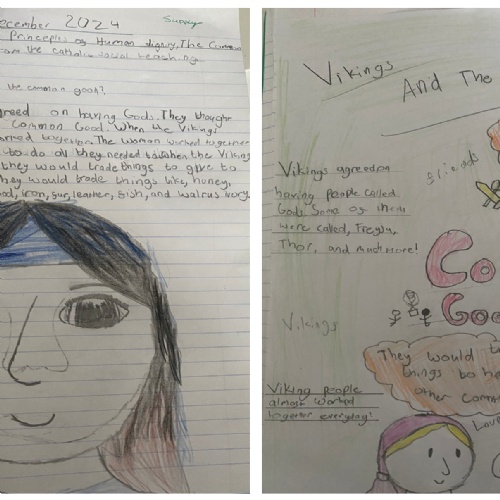 ecember 2024
Sunny
Principles of Human dignity, The Common
from the catholic social teaching.
the common good?
greed on having Gods. They thought
Common Good. When the Vikings
arned together. The woman worked together
to do all they needed to. When the Viking
they would trade things to give to
they would trade things like, honey,
od, iron, fur, leather, fish, and walrus ivory
Vikings
And The
Vikings agreed on
having people called
Gods. Some of them
were called, Freyja,
Thor, and much more!
friends
Co
Goo
Vikings
They would t
things to he
other Comm
Viking people
almost worked
together everyday!
Love